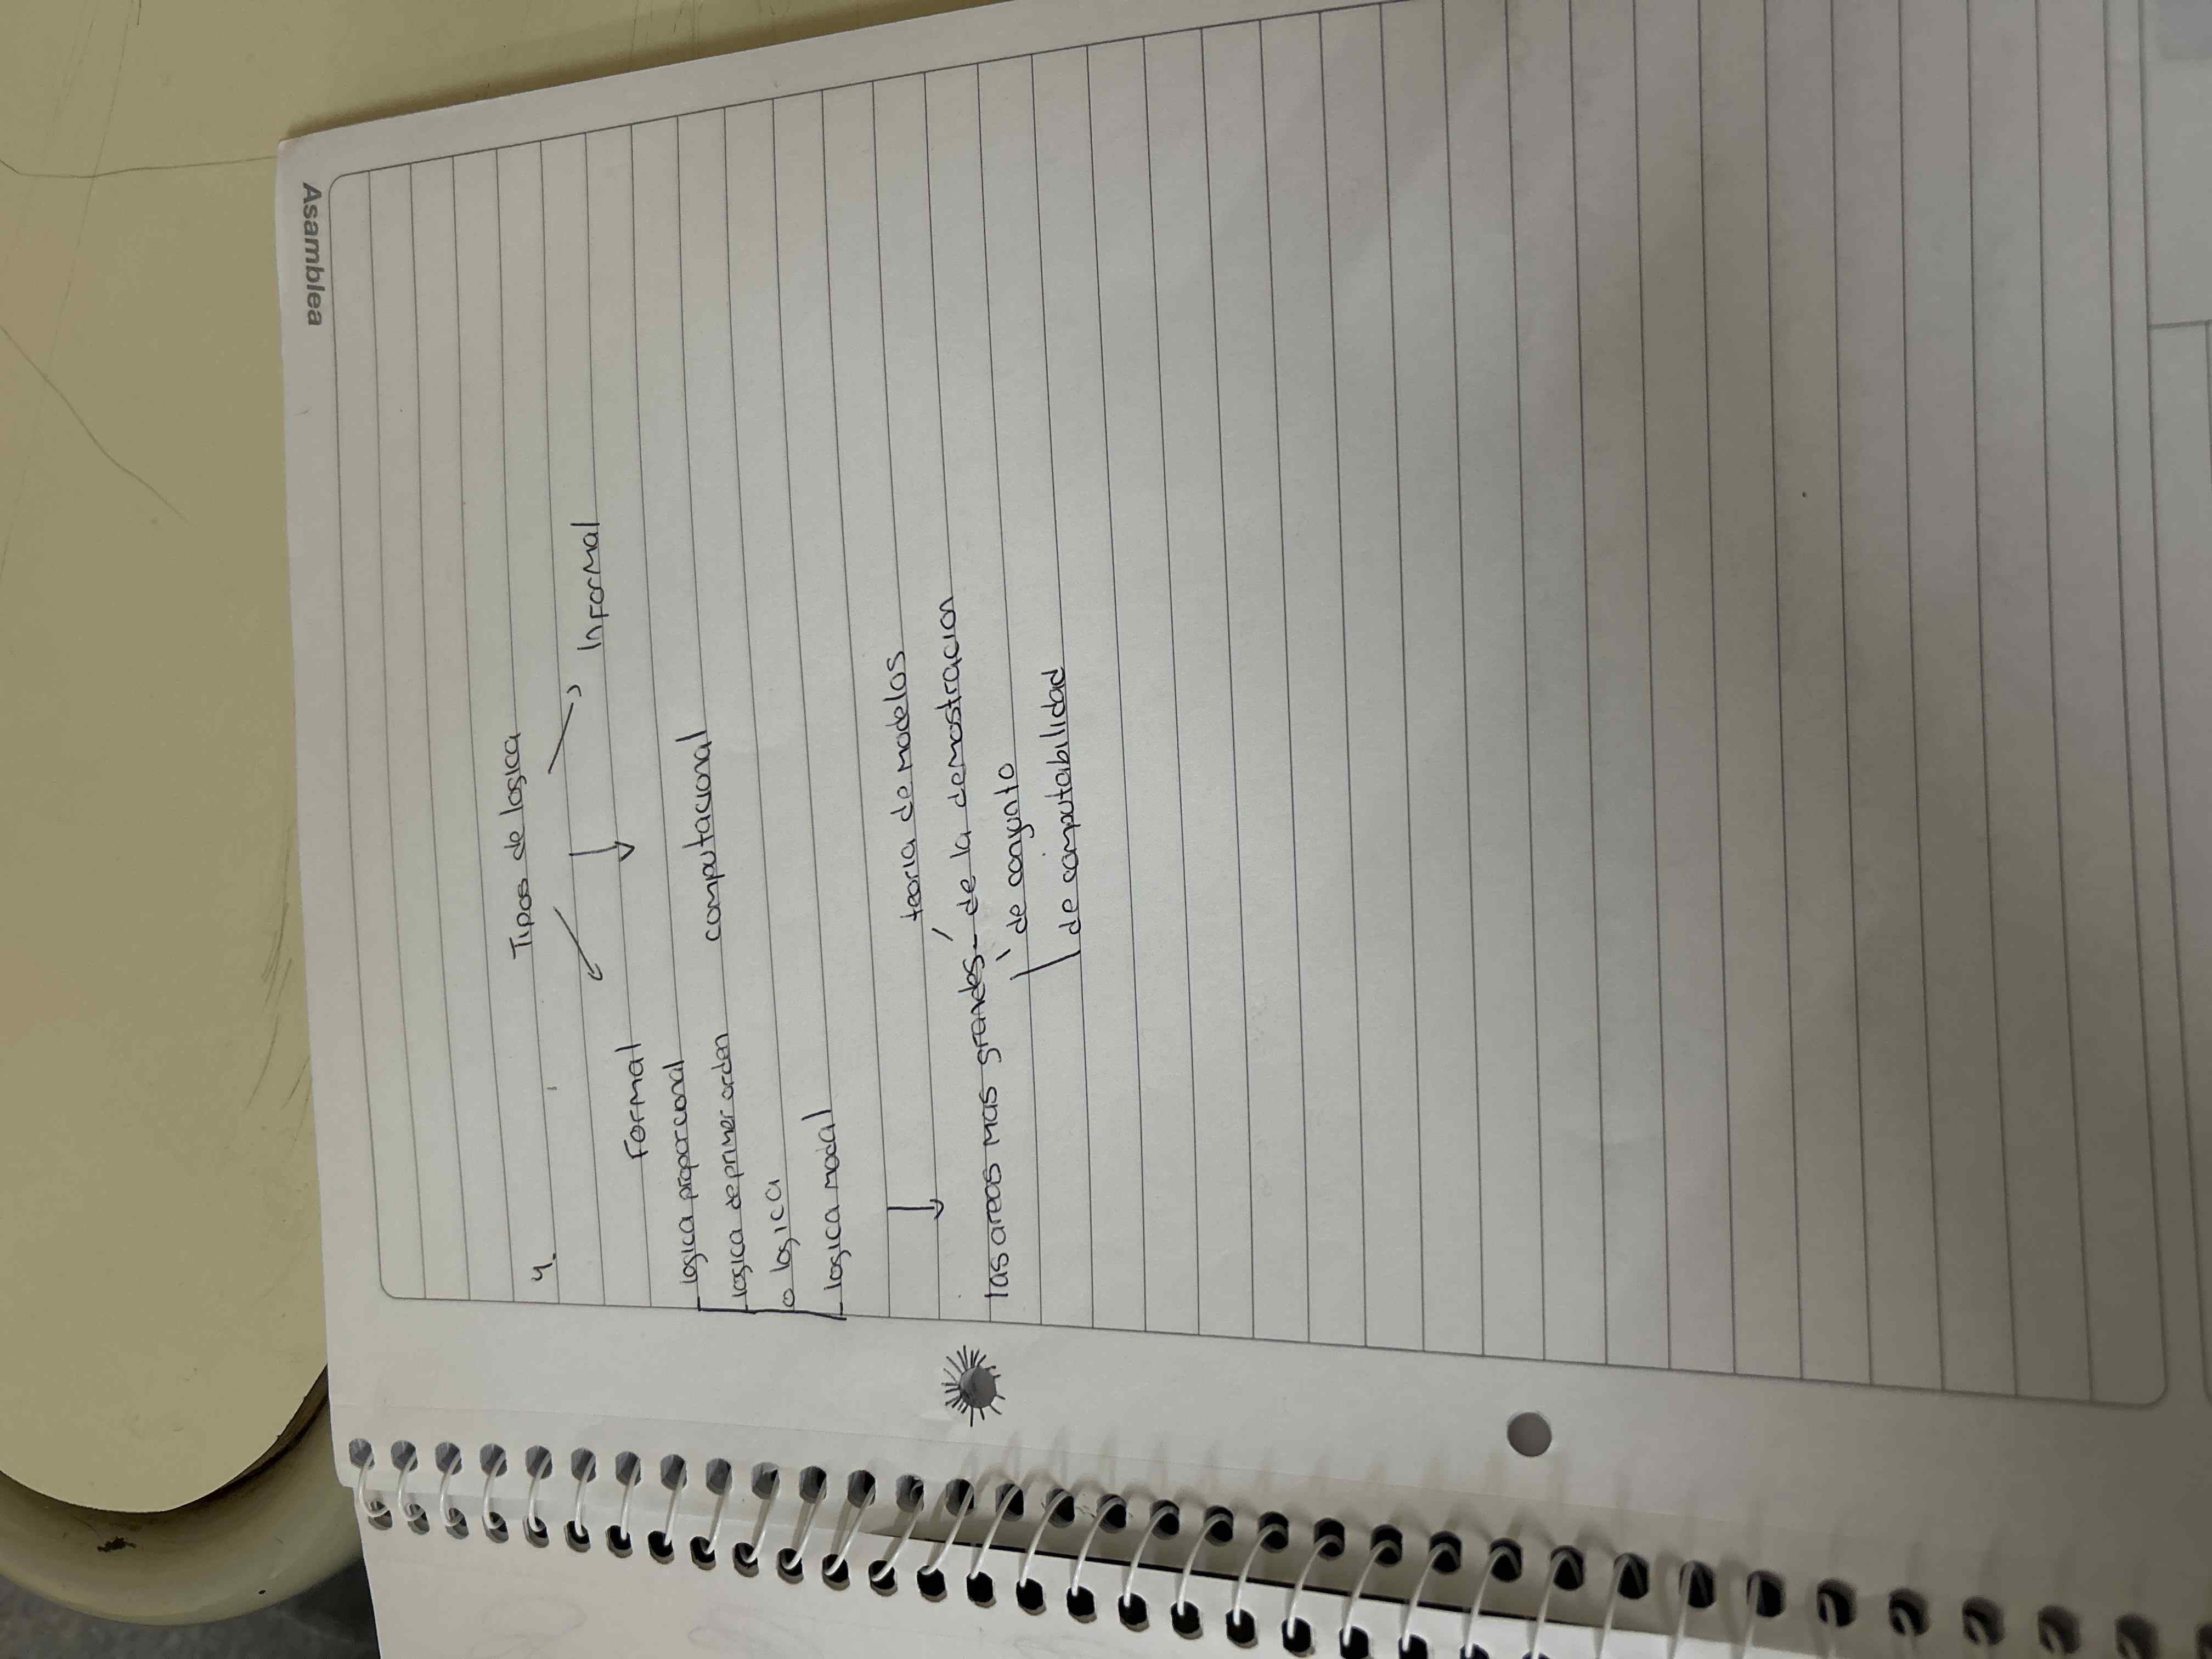 Asamblea
4.
Tipos de logica
Formal
Informal
computacional
logica proporcional
logica de primer orden
o logica
logica modal
las areas mas grandes
teoria de modelos
de la demostracion
de conjunto
de computabilidad